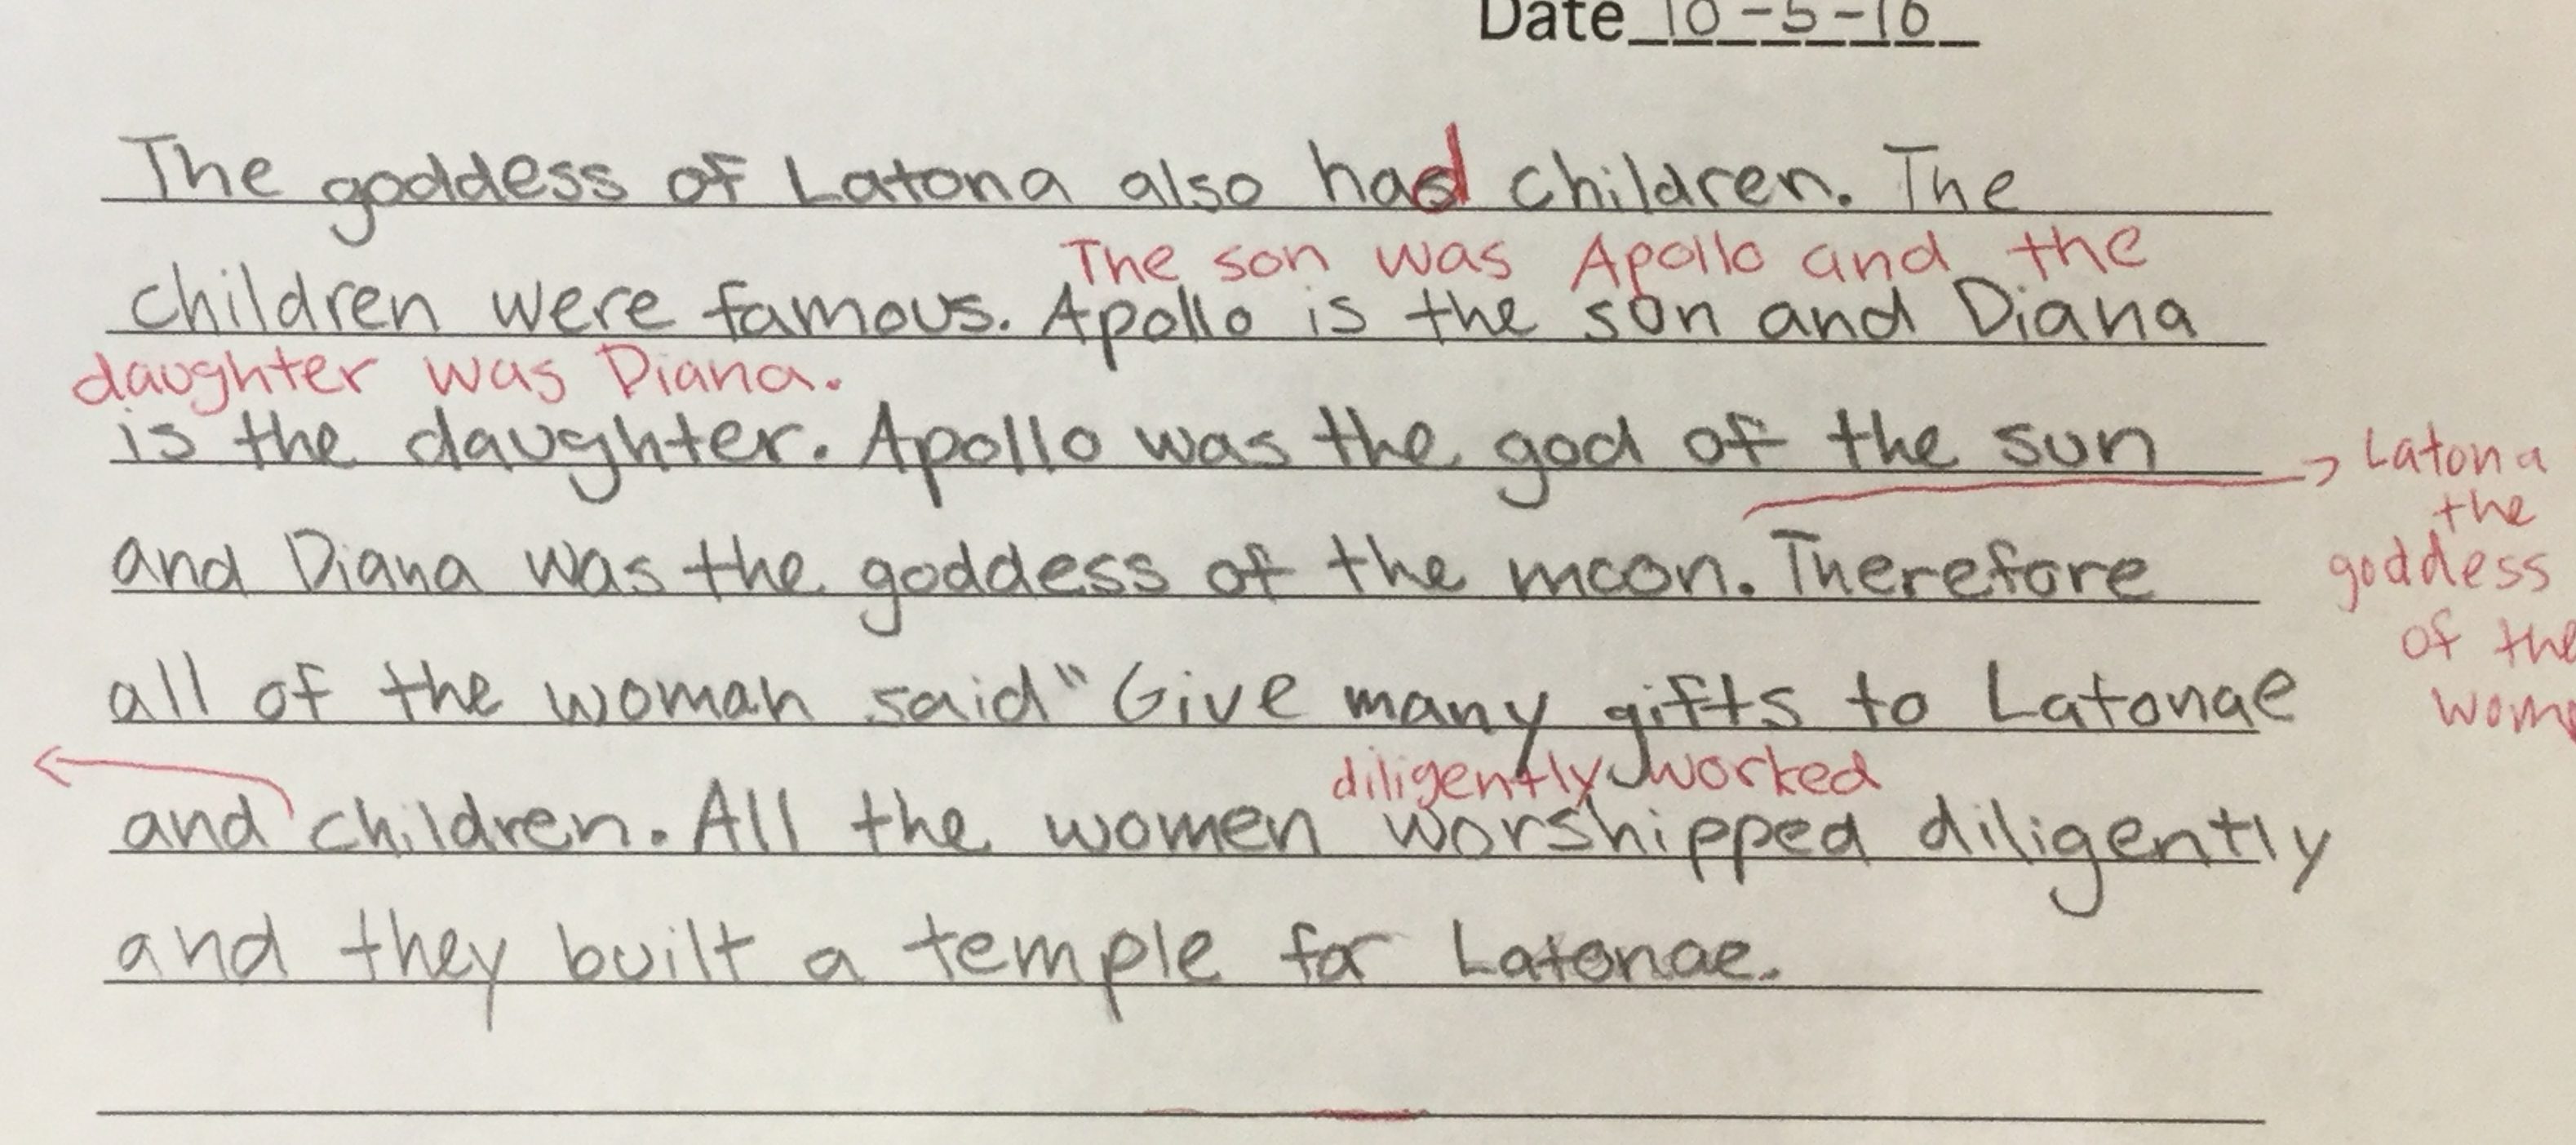 Date 10-5-16
The goddess of Latona also had children. The
The son was Apollo and the
children were famous. Apollo is the son and Diana
daughter was Diana.
is the daughter. Apollo was the god of the sun
Latona
the
and Diana was the goddess of the moon. Therefore
goddess
of the
all of the woman said "Give many gifts to Latonae
diligently worked
and children. All the women worshipped diligently
and they built a temple for Latonae.